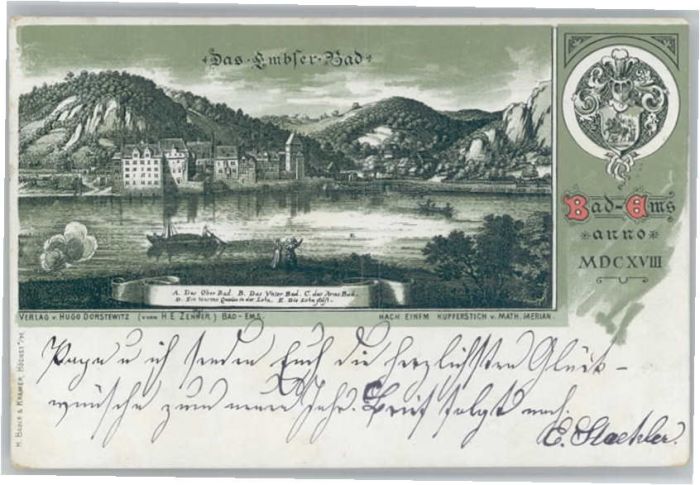 Das Embser Bad
Bad-Ems
anno
MDCXVIII
A. Das Ober Bad. B. Das Vnter Bad. C. das Arme Bad.
D. Ein warme Quelle in der Lohn. E. Die Lohn flüß.
VERLAG v. HUGO DORSTEWITZ (VORM H.E. ZENNER) BAD-EMS.
NACH EINEM KUPFERSTICH v. MATH. MERIAN.
H. BAUER & KRÄMER, HÖCHST a/M.
Papa u ich senden Euch die herzlichsten Glück-
wünsche zum neuen Jahr. Brief folgt noch.
E. Staehler.